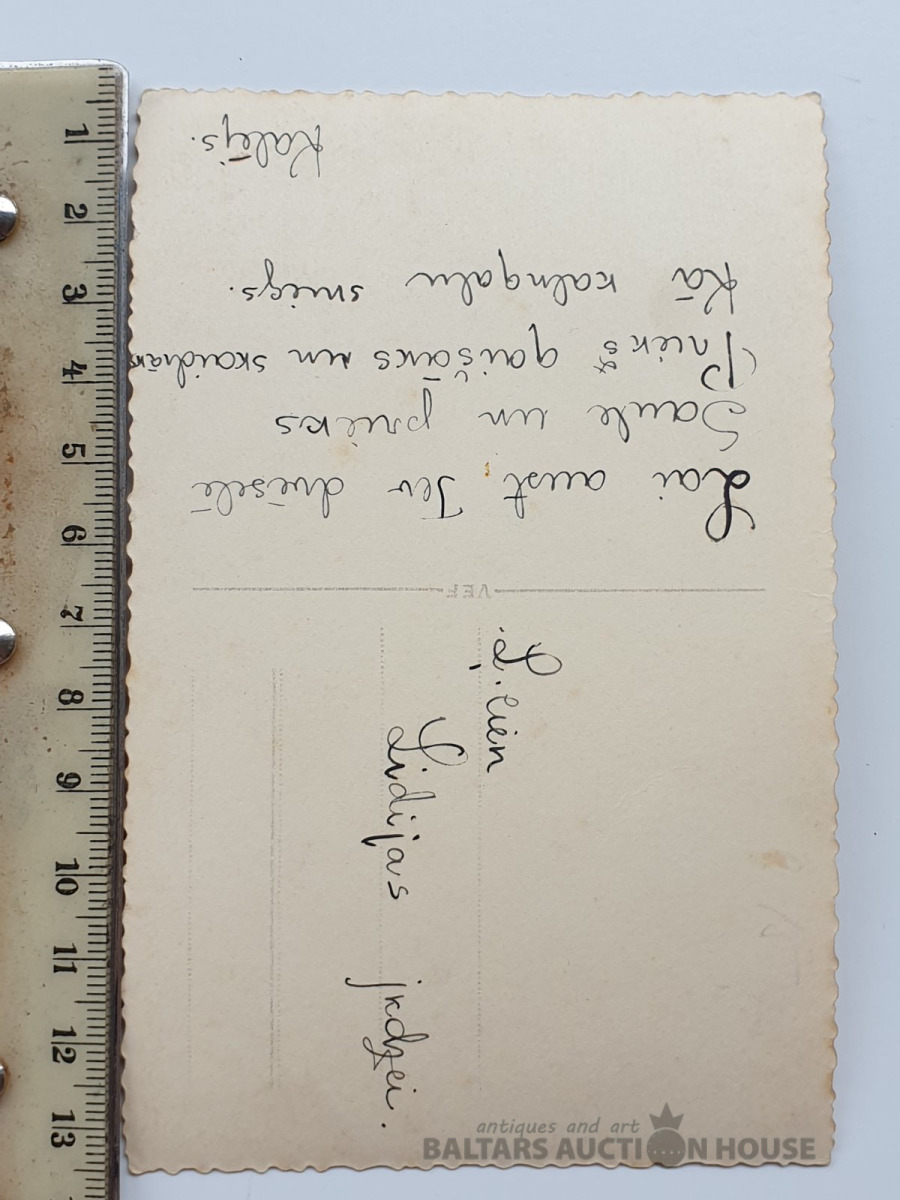 Lai aust Tev dvēselē
Saule un prieks
Prieks gaišāks un skaidrāks
Kā kalngalu sniegs.
Kalējs.
VEF
Ļ. cien
Lidijas jkdzei.
1
2
3
4
5
6
7
8
9
10
11
12
13
antiques and art
BALTARS AUCTION HOUSE